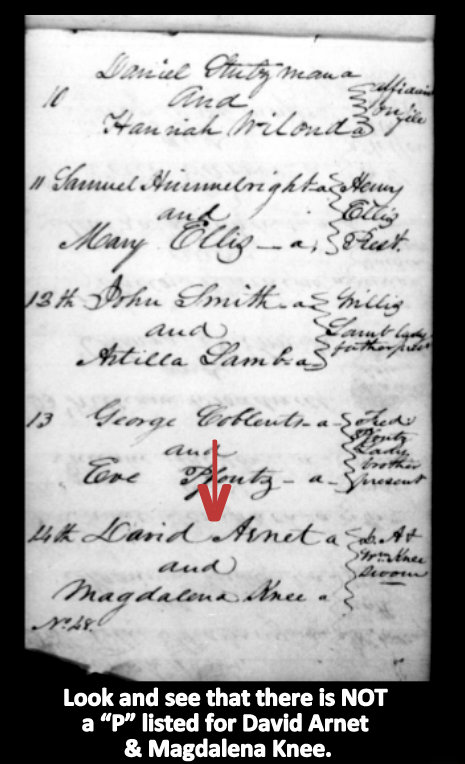 Daniel Stutzman a
10 and
Hannah Wilond a
affidavit
on file
11 Samuel Himmelright - a
and
Mary Ellis - a
Henry
Ellis
Prest.
13th John Smith - a
and
Artilla Lamb - a
Willis
Lamb lady
father present
13 George Coblentz - a -
and
Eve Pfoutz - a -
Fred
Pfoutz
Lady
brother
present
14th David Arnet a
and
Magdalena Knee a
D. A &
Wm Knee
sworn
No. 48.
Look and see that there is NOT
a “P” listed for David Arnet
& Magdalena Knee.